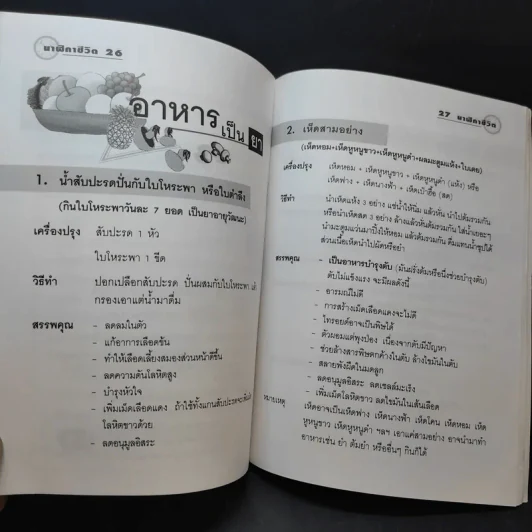 นาฬิกาชีวิต 26
อาหาร
เป็น ยา
1. น้ำสับปะรดปั่นกับใบโหระพา หรือใบตำลึง
(กินใบโหระพาวันละ 7 ยอด เป็นยาอายุวัฒนะ)
เครื่องปรุง สับปะรด 1 หัว
ใบโหระพา 1 ขีด
วิธีทำ ปอกเปลือกสับปะรด ปั่นผสมกับใบโหระพา แล้ว
กรองเอาแต่น้ำมาดื่ม
สรรพคุณ - ลดลมในตัว
- แก้อาการเลือดข้น
- ทำให้เลือดเลี้ยงสมองส่วนหน้าดีขึ้น
- ลดความดันโลหิตสูง
- บำรุงหัวใจ
- เพิ่มเม็ดเลือดแดง ถ้าใช้ทั้งแกนสับปะรดจะเพิ่มเม็ด
โลหิตขาวด้วย
- ลดอนุมูลอิสระ
27 นาฬิกาชีวิต
2. เห็ดสามอย่าง
(เห็ดหอม+เห็ดหูหนูขาว+เห็ดหูหนูดำ+ผสมมะตูมแห้ง+ใบเตย)
เครื่องปรุง เห็ดหอม + เห็ดหูหนูขาว + เห็ดหูหนูดำ (แห้ง) หรือ
เห็ดฟาง + เห็ดนางฟ้า + เห็ดเป๋าฮื้อ (สด)
วิธีทำ นำเห็ดแห้ง 3 อย่าง แช่น้ำให้นิ่ม แล้วหั่น นำไปต้มรวมกัน
หรือนำเห็ดสด 3 อย่าง ล้างแล้วหั่นต้มรวมกัน ใส่น้ำเยอะๆ
นำมะตูมแว่นมาปิ้งให้หอม แล้วต้มรวมกัน ดื่มแทนน้ำซุปได้
ส่วนเนื้อเห็ดนำไปผัดหรือยำ
สรรพคุณ - เป็นอาหารบำรุงตับ (มันฝรั่งต้มหรือนึ่งช่วยบำรุงตับ)
ตับไม่แข็งแรง จะมีผลดังนี้
- อารมณ์ไม่ดี
- การสร้างเม็ดเลือดแดงจะไม่ดี
- ไทรอยด์อาจเป็นพิษได้
- ตัวผอมแต่พุงป่อง เนื่องจากตับมีปัญหา
- ช่วยล้างสารพิษตกค้างในตับ ล้างไขมันในตับ
- สลายพังผืดในมดลูก
- ลดอนุมูลอิสระ ลดเซลล์มะเร็ง
- เพิ่มเม็ดโลหิตขาว ลดไขมันในเส้นเลือด
หมายเหตุ เห็ดอาจเป็นเห็ดฟาง เห็ดนางฟ้า เห็ดโคน เห็ดหอม เห็ด
หูหนูขาว เห็ดหูหนูดำ ฯลฯ เอาแค่สามอย่าง อาจนำมาทำ
อาหารเช่น ยำ ต้มยำ หรืออื่นๆ กินก็ได้